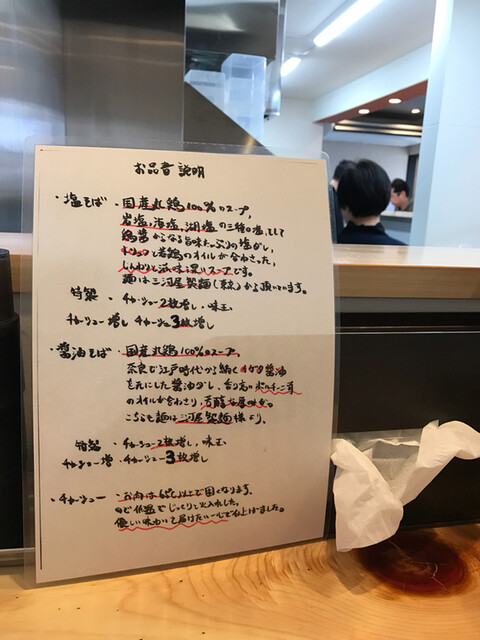 お品書説明
・塩そば・国産丸鶏100%のスープ。
岩塩、海塩、湖塩の三種の塩、そして
鶏醤からなる旨味たっぷりの塩ダレ。
と若鶏のオイルが合わさった、
じんわりと滋味深いスープです。
麺は三河屋製麺(東京)から頂いています。
特製・チャーシュー2枚増し・味玉
チャーシュー増し チャーシュー3枚増し
・醤油そば・国産丸鶏100%のスープ。
奈良で江戸時代から続くイゲタ醤油
を元にした醤油ダレ、香り高いポルチーニ茸
のオイルが合わさり、芳醇な風味。
こちらも麺は三河屋製麺様より。
特製・チャーシュー2枚増し・味玉
チャーシュー増・チャーシュー3枚増し
・チャーシュー・お肉は65℃以上で固くなります。
ので低温でじっくりと火入れした。
優しい味わいを届けたい一心で仕上げました。